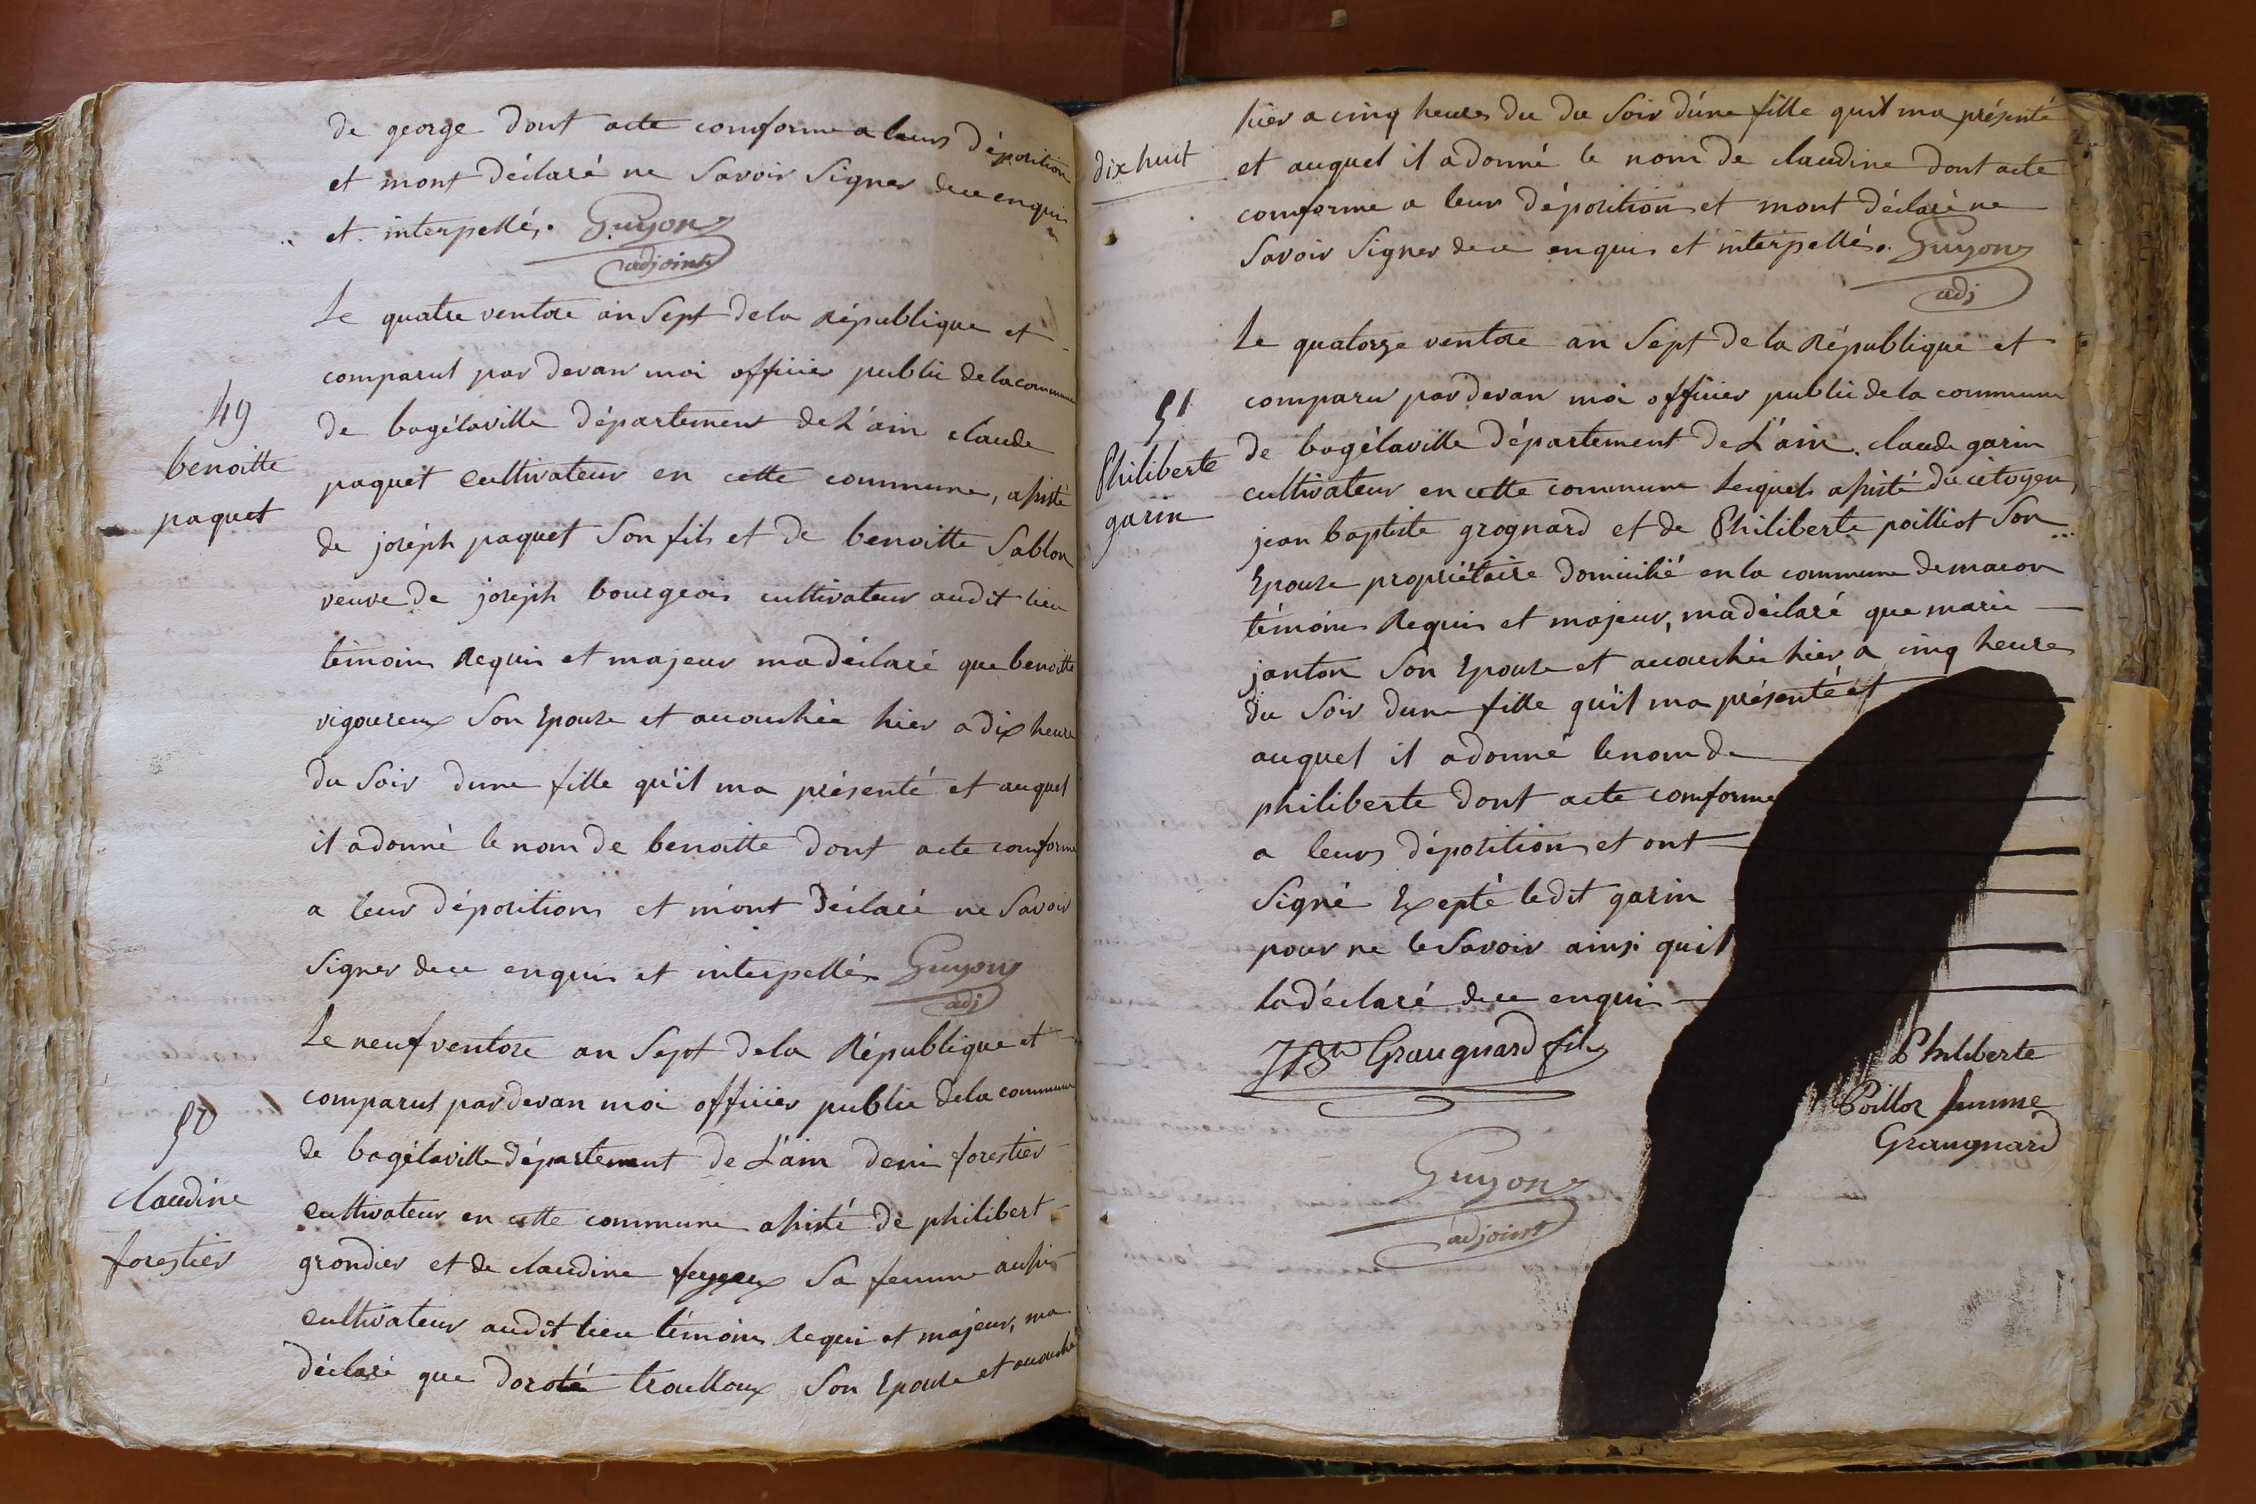 de george dont acte comforme a leurs déposition
et mont déclaré ne Savoir Signer dece enquis
et interpellés. Guyon
adjoint
Le quatre ventose an Sept dela République et
comparut par devan moi officier public dela commune
49
de bagélaville département de L'ain claude
benoitte
paquet Cultivateur en cette commune, assisté
paquet
de joséph paquet Son fils et de benoitte Sablon
veuve de joséph bourgeois cultivateur audit lieu
témoins Requis et majeur ma déclaré que benoitte
vigoureux Son Epouse et accouchée hier a dix heure
du Soir dune fille qu'il ma présenté et auquel
il a donné le nom de benoitte dont acte comforme
a leur dépositions et m'ont déclaré ne Savoir
Signer dece enquis et interpellés Guyon
adj
Le neuf ventose an Sept dela République et
comparut par devan moi officier public dela commune
50
de bagélaville département de L'ain denis forestier
claudine
cultivateur en cette commune assisté de philibert
forestier
grondier et de claudine feyeux Sa femme aussi
Cultivateur audit lieu témoins Requis et majeur, ma
déclaré que doroté trouilloux Son Epouse et accouchée
hier a cinq heures du du Soir d'une fille quil ma présenté
dix huit
et auquel il a donné le nom de claudine dont acte
comforme a leur déposition et mont déclaré ne
Savoir Signer dece enquis et interpellés. Guyon
adj
Le quatorze ventose an Sept de la République et
comparu par devan moi officier public de la commune
51
de bagélaville département de L'ain. claude garin
Philiberte
cultivateur en cette commune Lesquels assisté du citoyen
garin
jean baptiste grognard et de Philiberte poilliot Son
Epouse propriétaire domicilié en la commune de macon
témoins Requis et majeur, ma déclaré que marie
janton Son Epouse et accouchée hier a cinq heures
du Soir dune fille qu'il ma présenté et
auquel il a donné le nom de
philiberte dont acte comforme
a leurs dépotition et ont
Signé Exepté ledit garin
pour ne le Savoir ainsi quil
la déclaré dece enquis
JBte Graugnard fils
Philiberte
Poillot femme
Graugnard
Guyon
adjoint